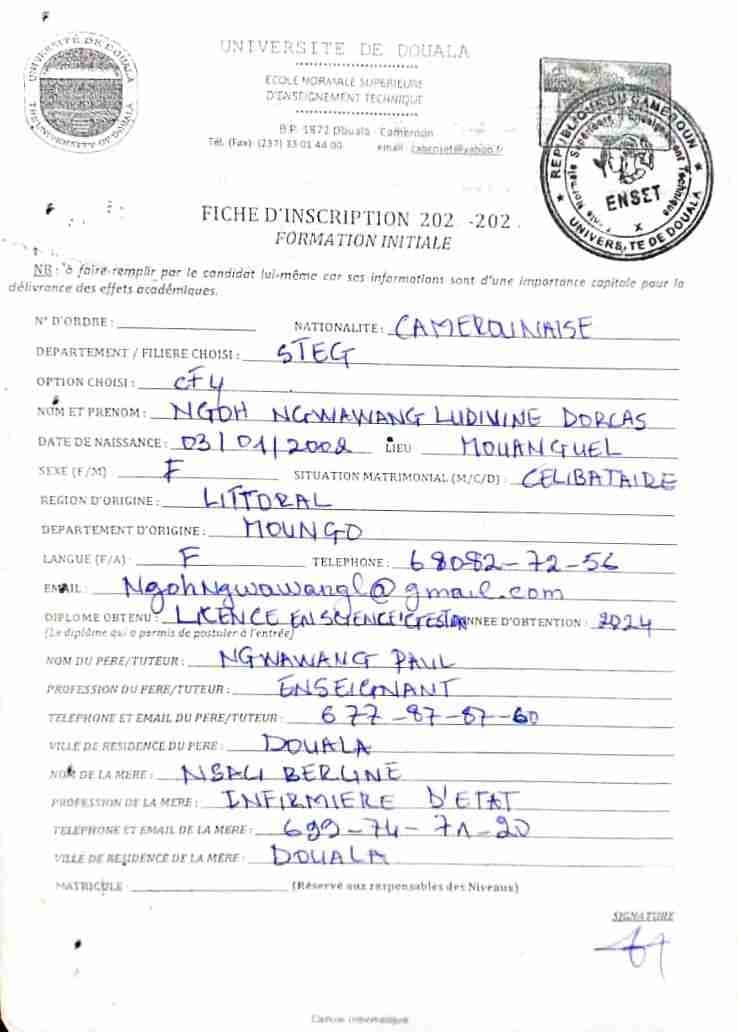 UNIVERSITE DE DOUALA
ECOLE NORMALE SUPERIEURE
D'ENSEIGNEMENT TECHNIQUE
B.P. 1872 Douala - Cameroun
Tél. (Fax) (237) 33 01 44 00 email :
UNIVERSITÉ DE DOUALA
THE UNIVERSITY OF DOUALA
REPUBLIQUE DU CAMEROUN
Ecole Normale Supérieure d'Enseignement Technique
ENSET
UNIVERSITE DE DOUALA
FICHE D'INSCRIPTION 202 -202 .
FORMATION INITIALE
NB : à faire remplir par le candidat lui-même car ses informations sont d'une importance capitale pour la
délivrance des effets académiques.
N° D'ORDRE : NATIONALITE : CAMEROUNAISE
DEPARTEMENT / FILIERE CHOISI : STEG
OPTION CHOISI : CF4
NOM ET PRENOM : NGOH NGWAWANG LUDIVINE DORCAS
DATE DE NAISSANCE : 03/01/2002 LIEU MOUANGUEL
SEXE (F/M) : F SITUATION MATRIMONIAL (M/C/D) : CELIBATAIRE
REGION D'ORIGINE : LITTORAL
DEPARTEMENT D'ORIGINE : MOUNGO
LANGUE (F/A) : F TELEPHONE : 68082-72-56
EMAIL : Ngohngwawangl@gmail.com
DIPLOME OBTENU : LICENCE EN SCIENCE GESTION ANNEE D'OBTENTION : 2024
(Le diplôme qui a permis de postuler à l'entrée)
NOM DU PERE/TUTEUR : NGWAWANG PAUL
PROFESSION DU PERE/TUTEUR : ENSEIGNANT
TELEPHONE ET EMAIL DU PERE/TUTEUR : 677-87-87-60
VILLE DE RESIDENCE DU PERE : DOUALA
NOM DE LA MERE : NSALI BERLINE
PROFESSION DE LA MERE : INFIRMIERE D'ETAT
TELEPHONE ET EMAIL DE LA MERE : 699-74-71-20
VILLE DE RESIDENCE DE LA MERE : DOUALA
MATRICULE : (Réservé aux responsables des Niveaux)
SIGNATURE